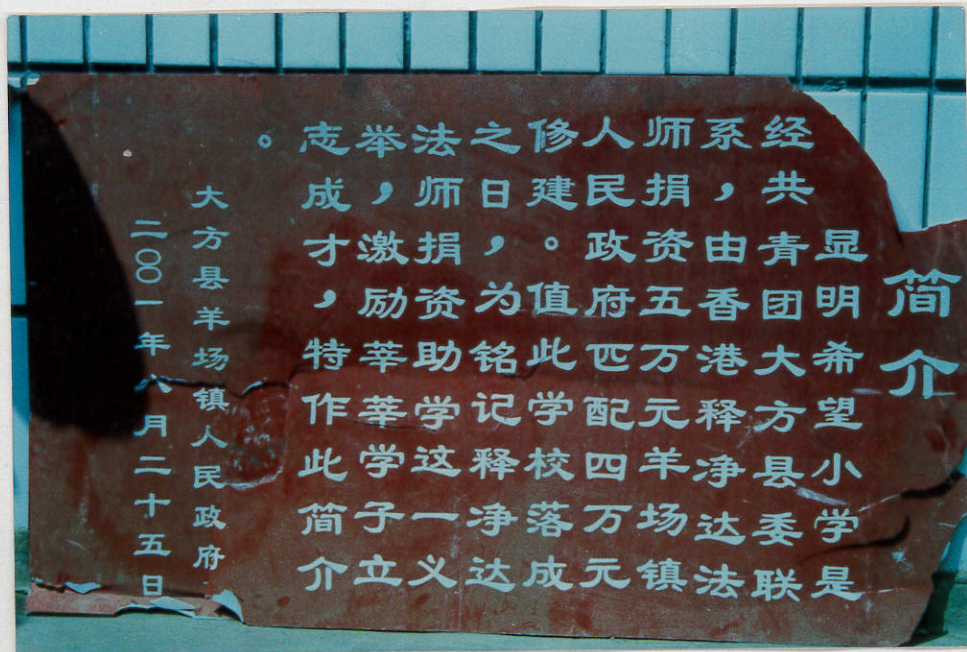 简介
显明希望小学是
经共青团大方县委联
系，由香港释净达法
师捐资五万元羊场镇
人民政府匹配四万元
修建。值此学校落成
之日，为铭记释净达
法师捐资助学这一义
举，激励莘莘学子立
志成才，特作此简介
。
大方县羊场镇人民政府
二〇〇一年八月二十五日